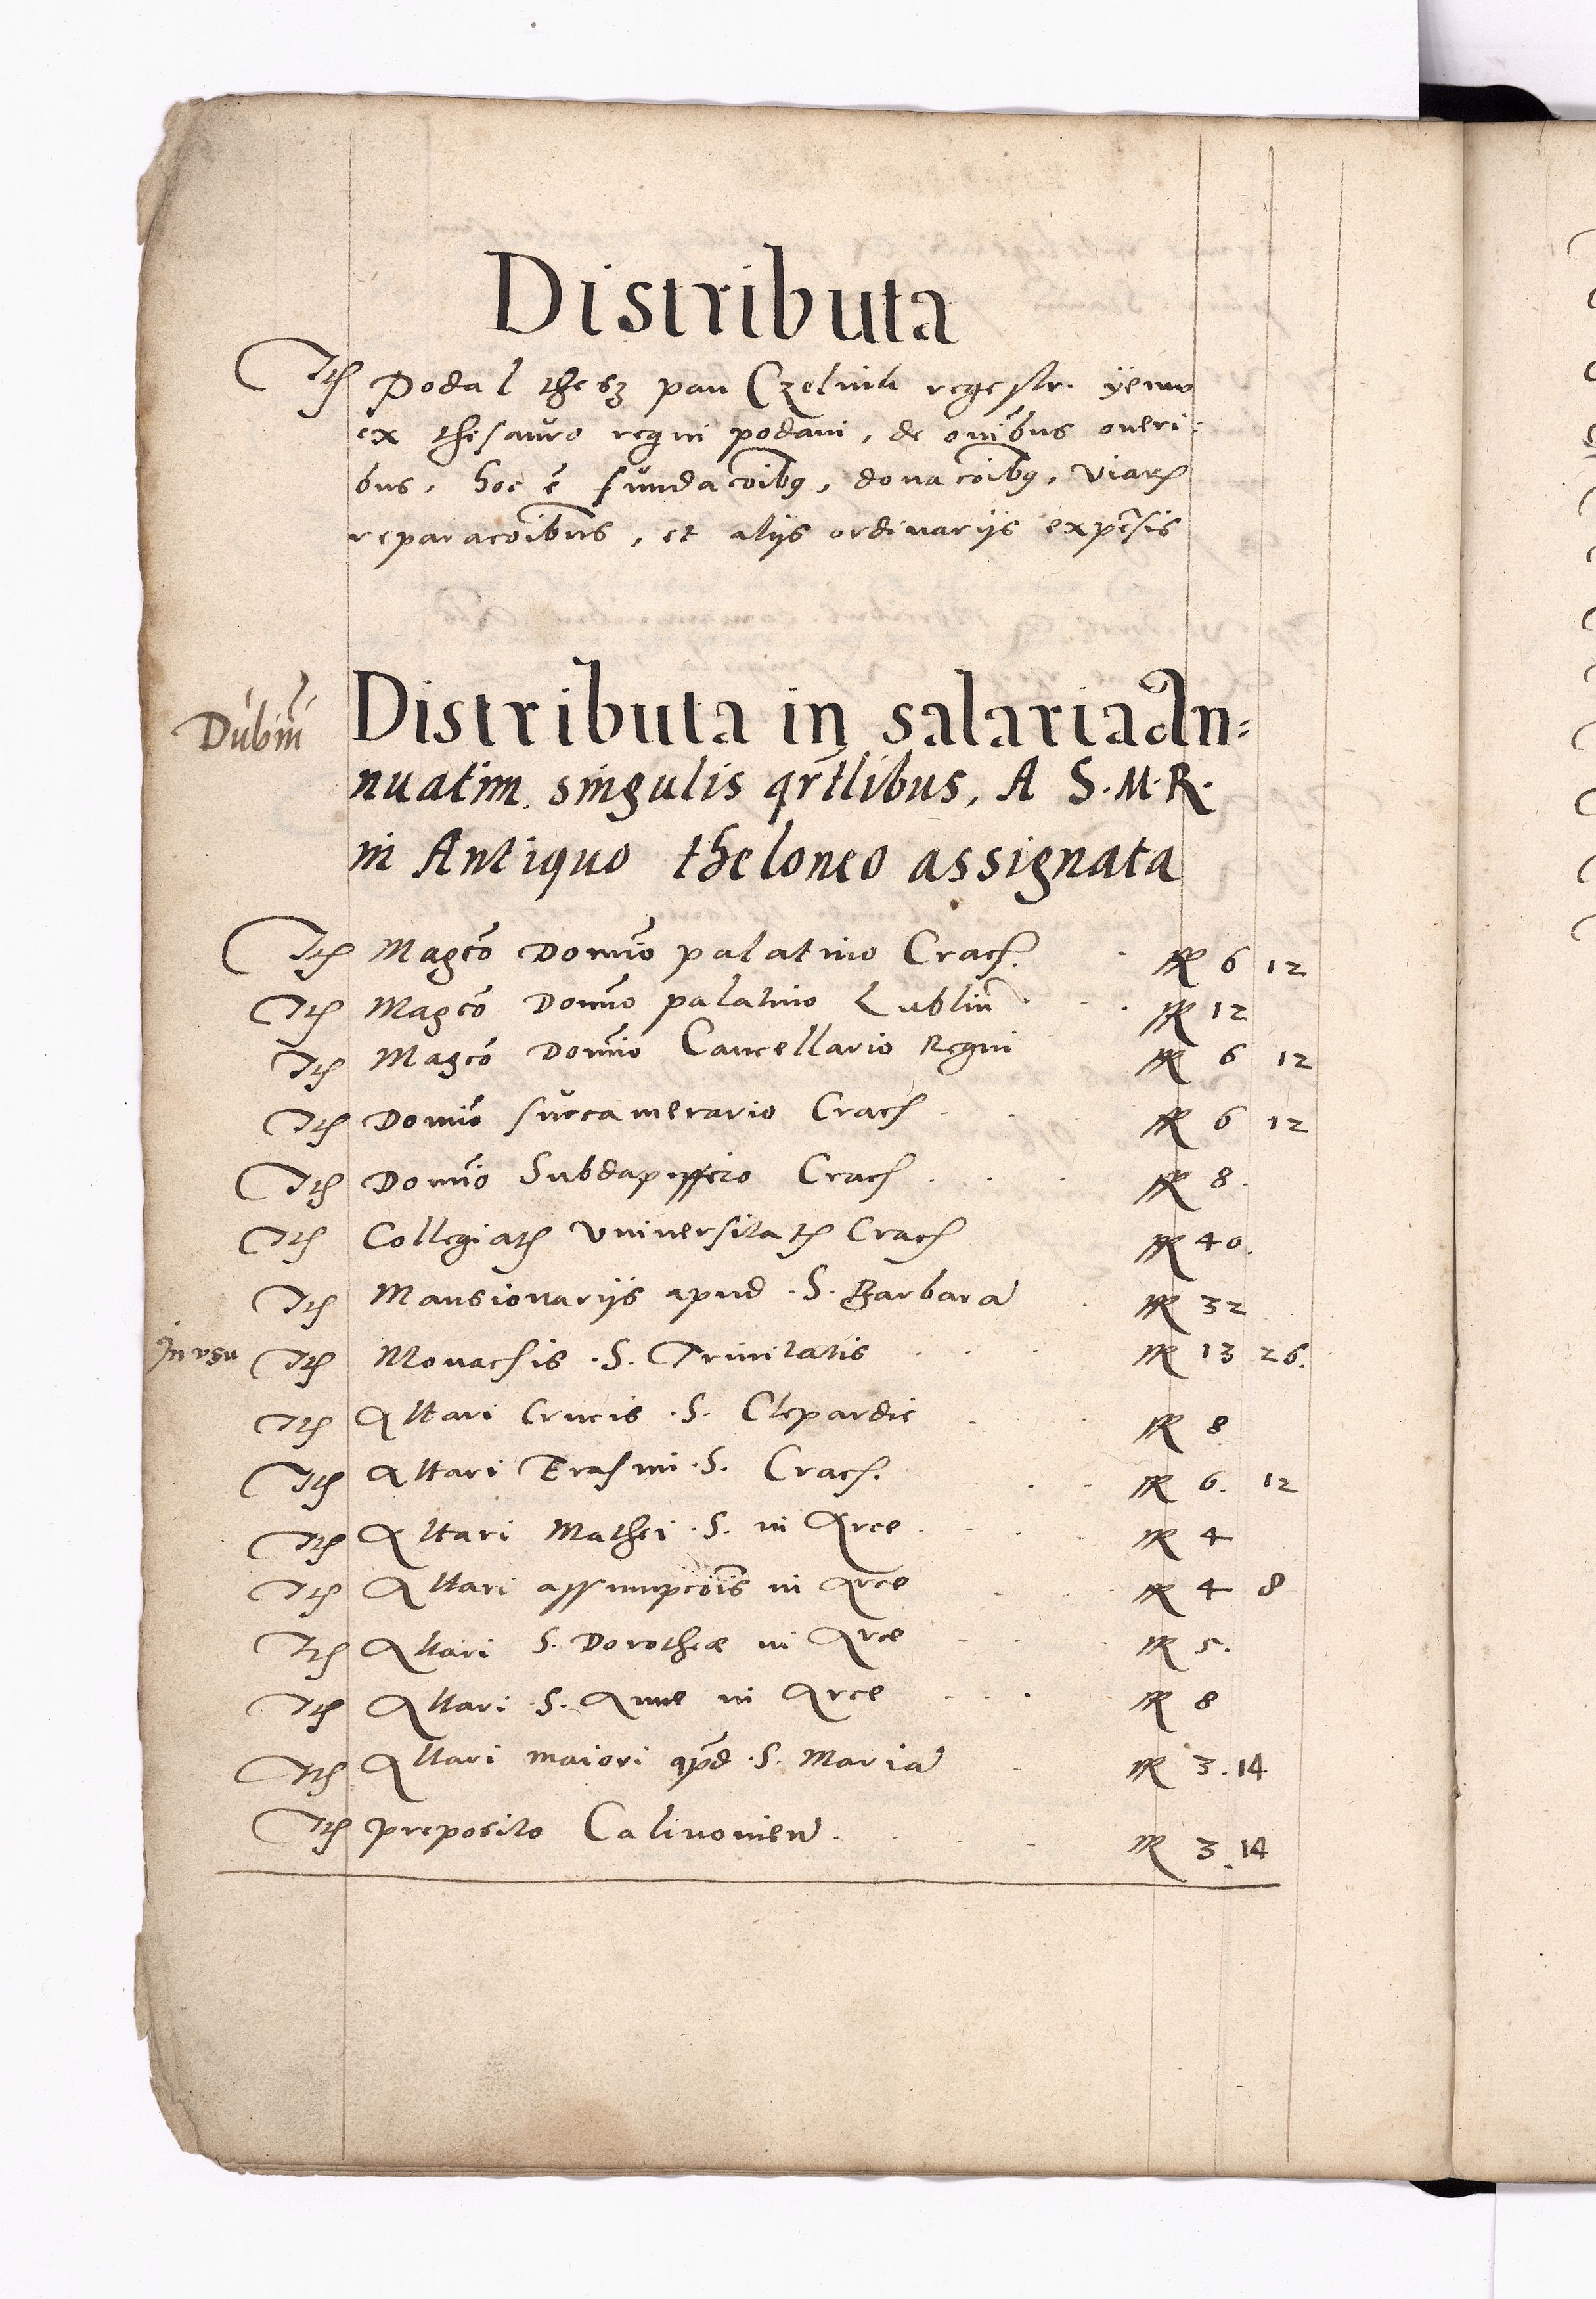 Distributa
Itē Podal thesz pan Czelnik regestr. yemv
ex thesauro regni podani, de oni͞bus oneri:
bus, hoc ē fundaco͞ibꝫ, donaco͞ibꝫ, viarꝫ
reparaco͞ibus, et alijs ordinarijs expe͞sis
Dubiu͞ Distributa in salaria An:
nuatim singulis qr͞tlibus, A S.M.R.
in Antiquo theloneo assignata
Itē Magco͞ Domi͞o palatino Crac͞. M 6 12
Itē Magco͞ Domi͞o palatino Lublin͞ M 12
Itē Magco͞ Domi͞o Cancellario Regni M 6 12
Itē Domi͞o succamerario Crac͞ M 6 12
Itē Domi͞o Subdapiffero Crac͞ M 8.
Itē Collegiatꝫ Vniversitatꝫ Crac͞ M 40.
Itē Mansionarijs apud .S. Barbara͞ M 32
In vsu Itē Monachis .S. Trinitatis M 13 26.
Itē Altari Crucis .S. Clepardie M 8
Itē Altari Erasmi .S. Crac͞. M 6. 12
Itē Altari Mathei .S. in Arce. M 4
Itē Altari assumpco͞is in Arce M 4 8
Itē Altari S. Dorotheæ in Arce M 5.
Itē Altari S. Anne in Arce M 8
Itē Altari maiori ap͞d .S. Maria͞ M 3. 14
Itē preposito Calinovien͞. M 3. 14